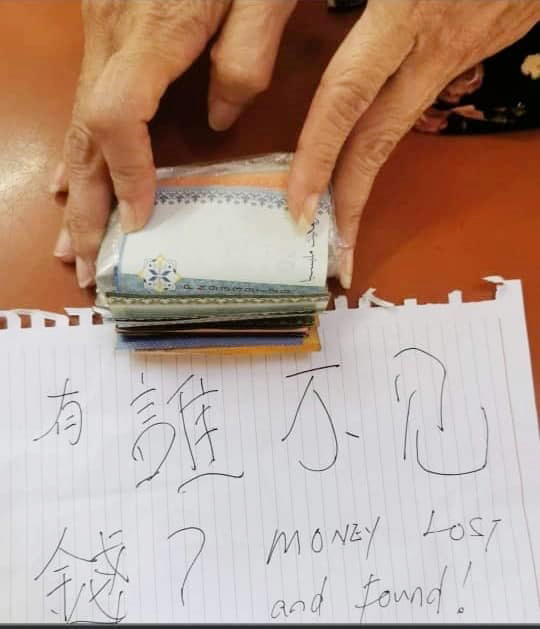 有誰不見
錢? MONEY LOST
and Found!